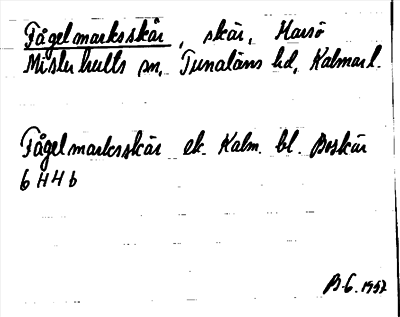 Fågelmarksskär, skär, Harsö
Misterhults sn, Tunaläns hd, Kalmar l.
Fågelmarksskär ek. Kalm. bl. Boskär
6 H 4 b
B.G. 1957